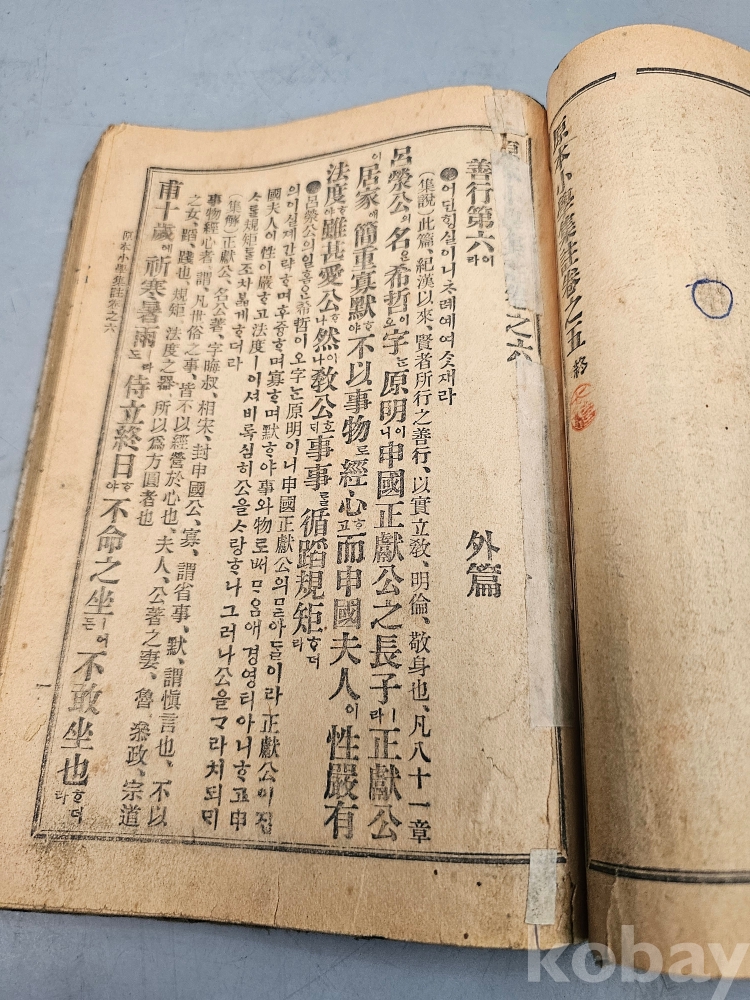 原本小學集註卷之五 終
之六
外篇
善行第六이라
어딘힝실이니ᄎᆞ례예여ᄉᆞᆺ재라
(集說)此篇、紀漢以來、賢者所行之善行、以實立敎、明倫、敬身也、凡八十一章
呂滎公의名은希哲이오字ᄂᆞᆫ原明이니申國正獻公之長子ㅣ라正獻公
이居家애簡重寡默ᄒᆞ야不以事物로經心ᄒᆞ고而申國夫人이性嚴有
法度ᄒᆞ야雖甚愛公ᄒᆞ나然이나敎公호ᄃᆡ事事를循蹈規矩ᄒᆞ더라
呂滎公의일홈은希哲이오字ᄂᆞᆫ原明이니申國正獻公의ᄆᆞᆮ아ᄃᆞᆯ이라正獻公이집
의이실제간략ᄒᆞ며후중ᄒᆞ며寡ᄒᆞ며默ᄒᆞ야事와物로ᄡᅥᄆᆞᄋᆞᆷ애경영티아니ᄒᆞ고申
國夫人이性이嚴ᄒᆞ고法度ㅣ이셔비록심히公을ᄉᆞ랑ᄒᆞ나그러나公을ᄀᆞᄅᆞ치되미
ᄉᆞ를規矩를조차ᄇᆞᆲ게ᄒᆞ더라
(集解)正獻公、名公著、字晦叔、相宋、封申國公、寡、謂省事、默、謂愼言也、不以
事物經心者、謂、凡世俗之事、皆不以經營於心也、夫人、公著之妻、魯參政、宗道
之女、蹈、踐也、規矩、法度之器、所以爲方圓者也
甫十歲에祈寒暑雨ㅣ라도侍立終日ᄒᆞ야不命之坐ㅣ어든不敢坐也ᄒᆞ더라
原本小學集註卷之六
kobay